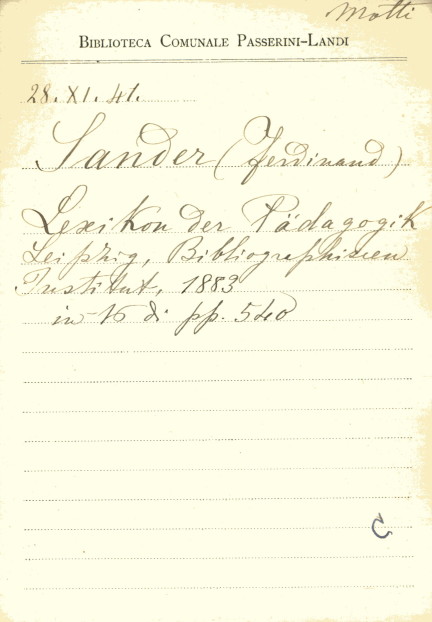 Motti
BIBLIOTECA COMUNALE PASSERINI-LANDI
28. XI. 41.
Sander (Ferdinand)
Lexikon der Pädagogik
Leipzig, Bibliographisces
Institut, 1883
in-16 di pp. 540
C